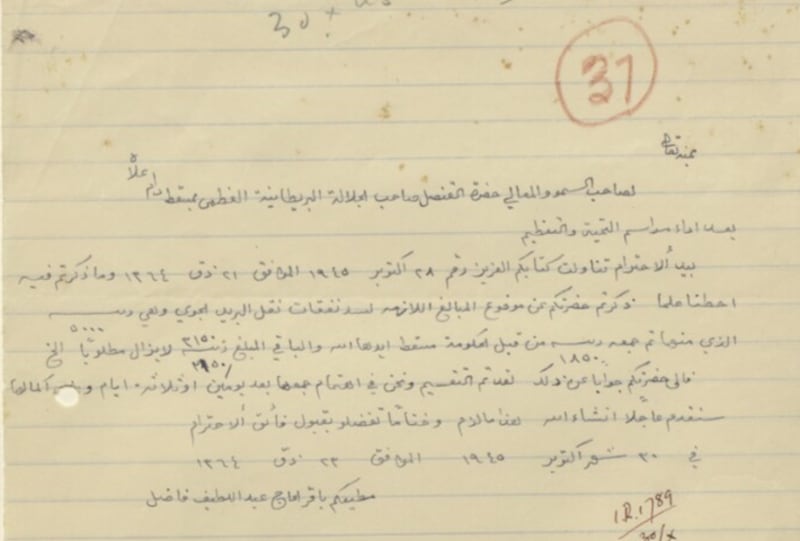 30 x
37
بمنه تعالى
لصاحب السمو والمعالي حضرة القنصل صاحب الجلالة البريطانية العظمى بمسقط دام علاه
بعد اداء مراسم التحية والتعظيم
بيد ألاحترام تناولت كتابكم العزيز رقم ٢٨ اكتوبر ١٩٤٥ الموافق ٢١ ذق ١٣٦٤ وما ذكرتم فيه
احطنا علما ذكرتم حضرتكم عن موضوع المبالغ اللازمه لسد نفقات نقل البريد الجوي وهي
٥٠٠٠
الذي منها تم جمعه من قبل الحكومة مسقط ايدها الله والباقي المبلغ ٣١٥٠ لايزال مطلوبًا الخ
١٨٥٠
فالى حضرتكم جوابا عن ذلك لقد تم التقسيم ونحن في اهتمام جمعها بعد يومين او ثلاثة ايام
سنقدم عاجلا انشاء الله هذا مالزم وختامًا تفضلو بقبول فائق ألاحترام
في ٣٠ شهر اكتوبر ١٩٤٥ الموافق ٢٣ ذق ١٣٦٤
مطيعكم باقر الحاج عبد اللطيف فاضل
I.R. 1789
30/x